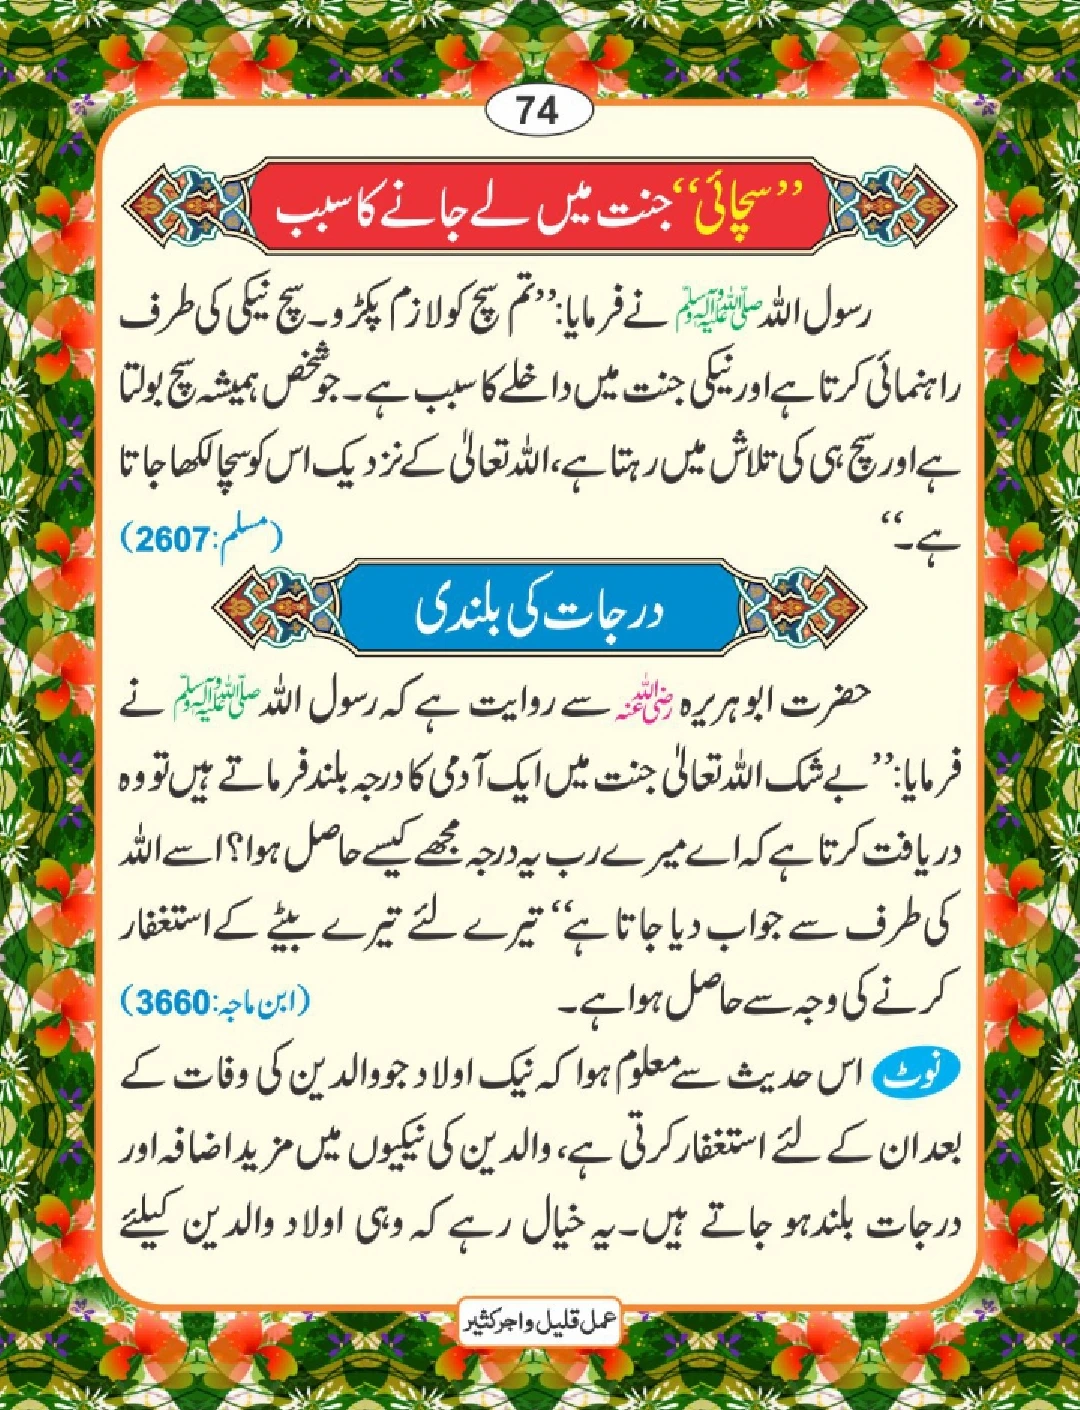 74
’’سچائی‘‘ جنت میں لے جانے کا سبب
رسول اللہ ﷺ نے فرمایا: ’’تم سچ کو لازم پکڑو۔ سچ نیکی کی طرف
راہنمائی کرتا ہے اور نیکی جنت میں داخلے کا سبب ہے۔ جو شخص ہمیشہ سچ بولتا
ہے اور سچ ہی کی تلاش میں رہتا ہے، اللہ تعالیٰ کے نزدیک اس کو سچا لکھا جاتا
ہے۔‘‘ (مسلم: 2607)
درجات کی بلندی
حضرت ابو ہریرہ رضی اللہ عنہ سے روایت ہے کہ رسول اللہ ﷺ نے
فرمایا: ’’بے شک اللہ تعالیٰ جنت میں ایک آدمی کا درجہ بلند فرماتے ہیں تو وہ
دریافت کرتا ہے کہ اے میرے رب یہ درجہ مجھے کیسے حاصل ہوا؟ اسے اللہ
کی طرف سے جواب دیا جاتا ہے‘‘ تیرے لئے تیرے بیٹے کے استغفار
کرنے کی وجہ سے حاصل ہوا ہے۔ (ابن ماجہ: 3660)
نوٹ اس حدیث سے معلوم ہوا کہ نیک اولاد جو والدین کی وفات کے
بعد ان کے لئے استغفار کرتی ہے، والدین کی نیکیوں میں مزید اضافہ اور
درجات بلند ہو جاتے ہیں۔ یہ خیال رہے کہ وہی اولاد والدین کیلئے
عمل قلیل و اجر کثیر